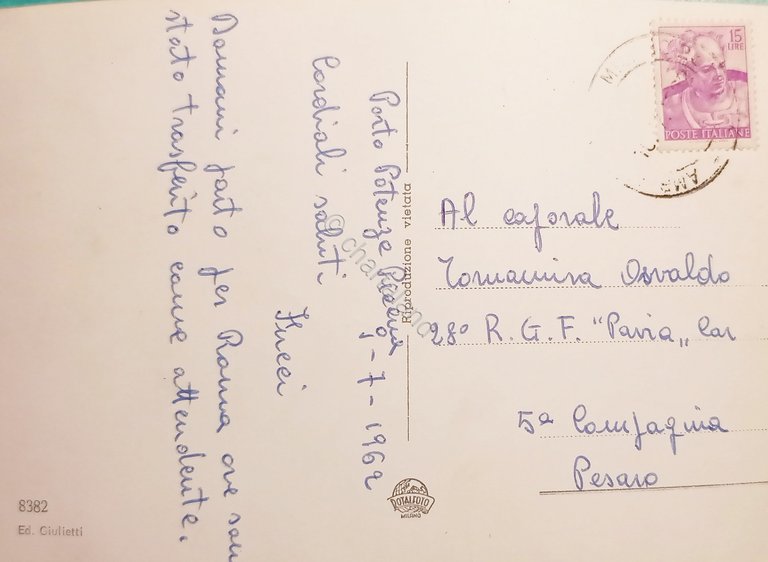 Porto Potenza Picena
5-7-1962
Cordiali saluti
Domani parto per Roma ove son
stato trasferito come attendente.
Riproduzione vietata
Al caporale
Tornamira Osvaldo
28° R. G. F. "Pavia" Car
5ª Compagnia
Pesaro
15
LIRE
POSTE ITALIANE
ROTALFOTO
MILANO
8382
Ed. Giulietti